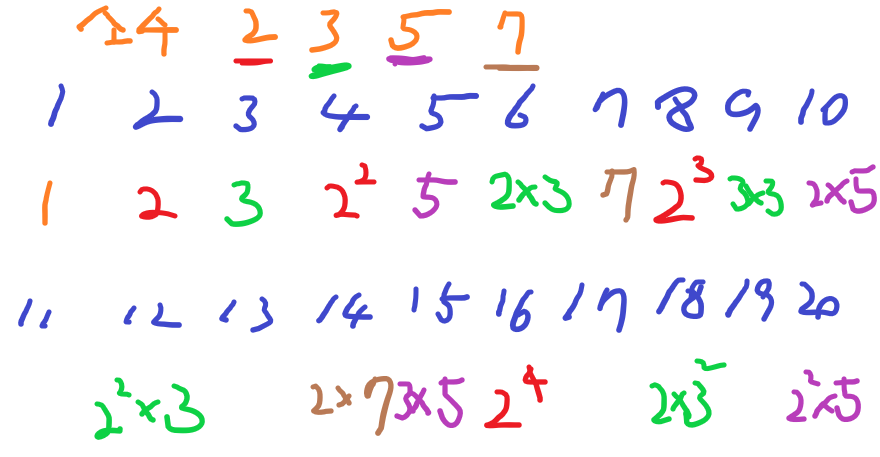 个位 2 3 5 7
1 2 3 4 5 6 7 8 9 10
1 2 3 2² 5 2×3 7 2³ 3×3 2×5
11 12 13 14 15 16 17 18 19 20
2²×3 2×7 3×5 2⁴ 2×3² 2²×5